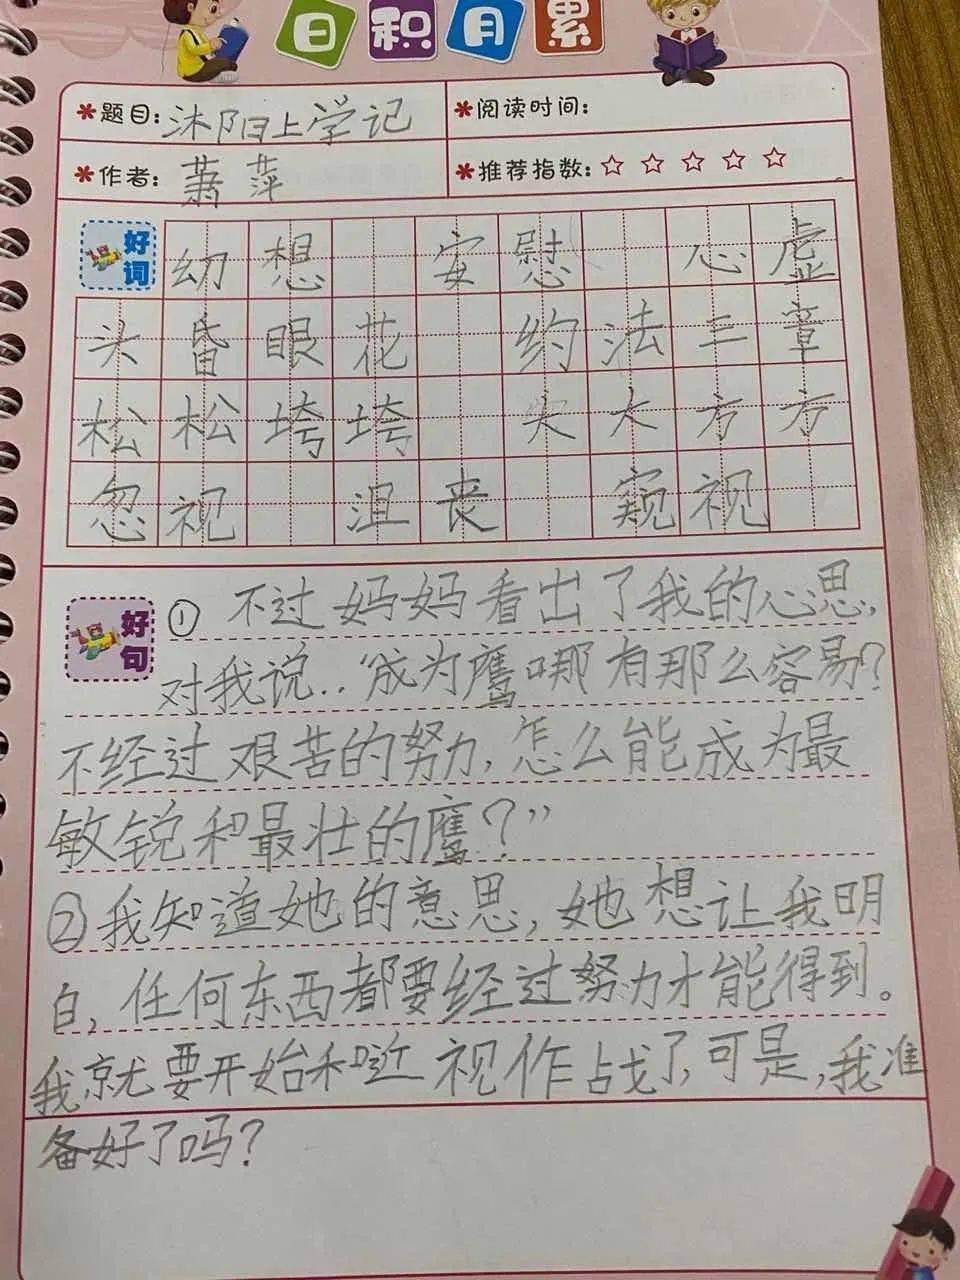 日积月累
*题目:沐阳上学记 *阅读时间:
*作者:萧萍 *推荐指数:☆☆☆☆☆
好词 幻想 安慰 心虚
头昏眼花 约法三章
松松垮垮 大大方方
忽视 沮丧 窥视
好句 ①不过妈妈看出了我的心思,
对我说:“成为鹰哪有那么容易?
不经过艰苦的努力,怎么能成为最
敏锐和最壮的鹰?”
②我知道她的意思,她想让我明
白,任何东西都要经过努力才能得到。
我就要开始和近视作战了,可是,我准
备好了吗?